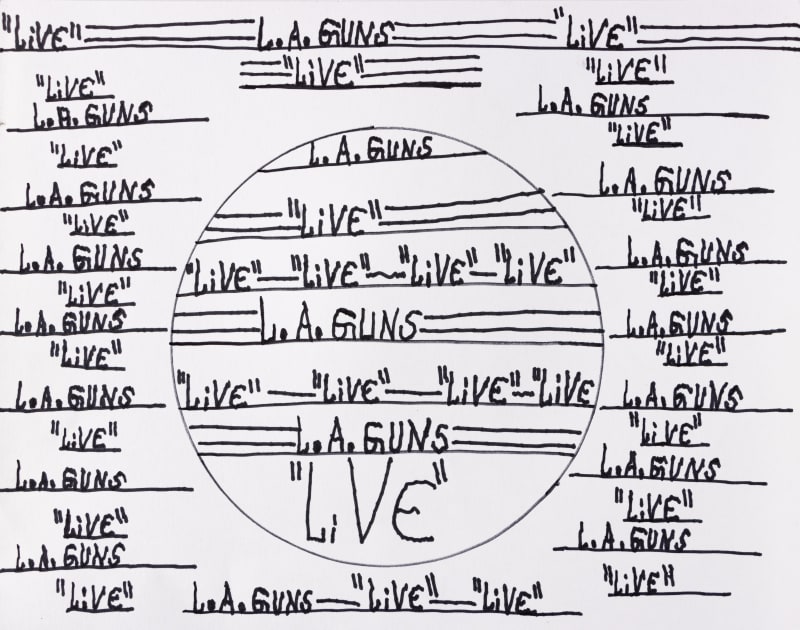 "LiVE" L.A. GUNS "LiVE"
"LiVE"
"LiVE"
L.A. GUNS
"LiVE"
L.A. GUNS
"LiVE"
L.A. GUNS
"LiVE"
L.A. GUNS
"LiVE"
L.A. GUNS
"LiVE"
L.A. GUNS
"LiVE"
L.A. GUNS
"LiVE"
L.A. GUNS
"LiVE"
"LiVE"—"LiVE"~"LiVE"—"LiVE"
L.A. GUNS
"LiVE"—"LiVE"—"LiVE"~"LiVE
L.A. GUNS
"LiVE"
L.A. GUNS—"LiVE"—"LiVE"
"LiVE"
L.A. GUNS
"LiVE"
L.A. GUNS
"LiVE"
L.A. GUNS
"LiVE"
L.A. GUNS
"LiVE"
L.A. GUNS
"LiVE"
L.A. GUNS
"LiVE"
L.A. GUNS
"LiVE"